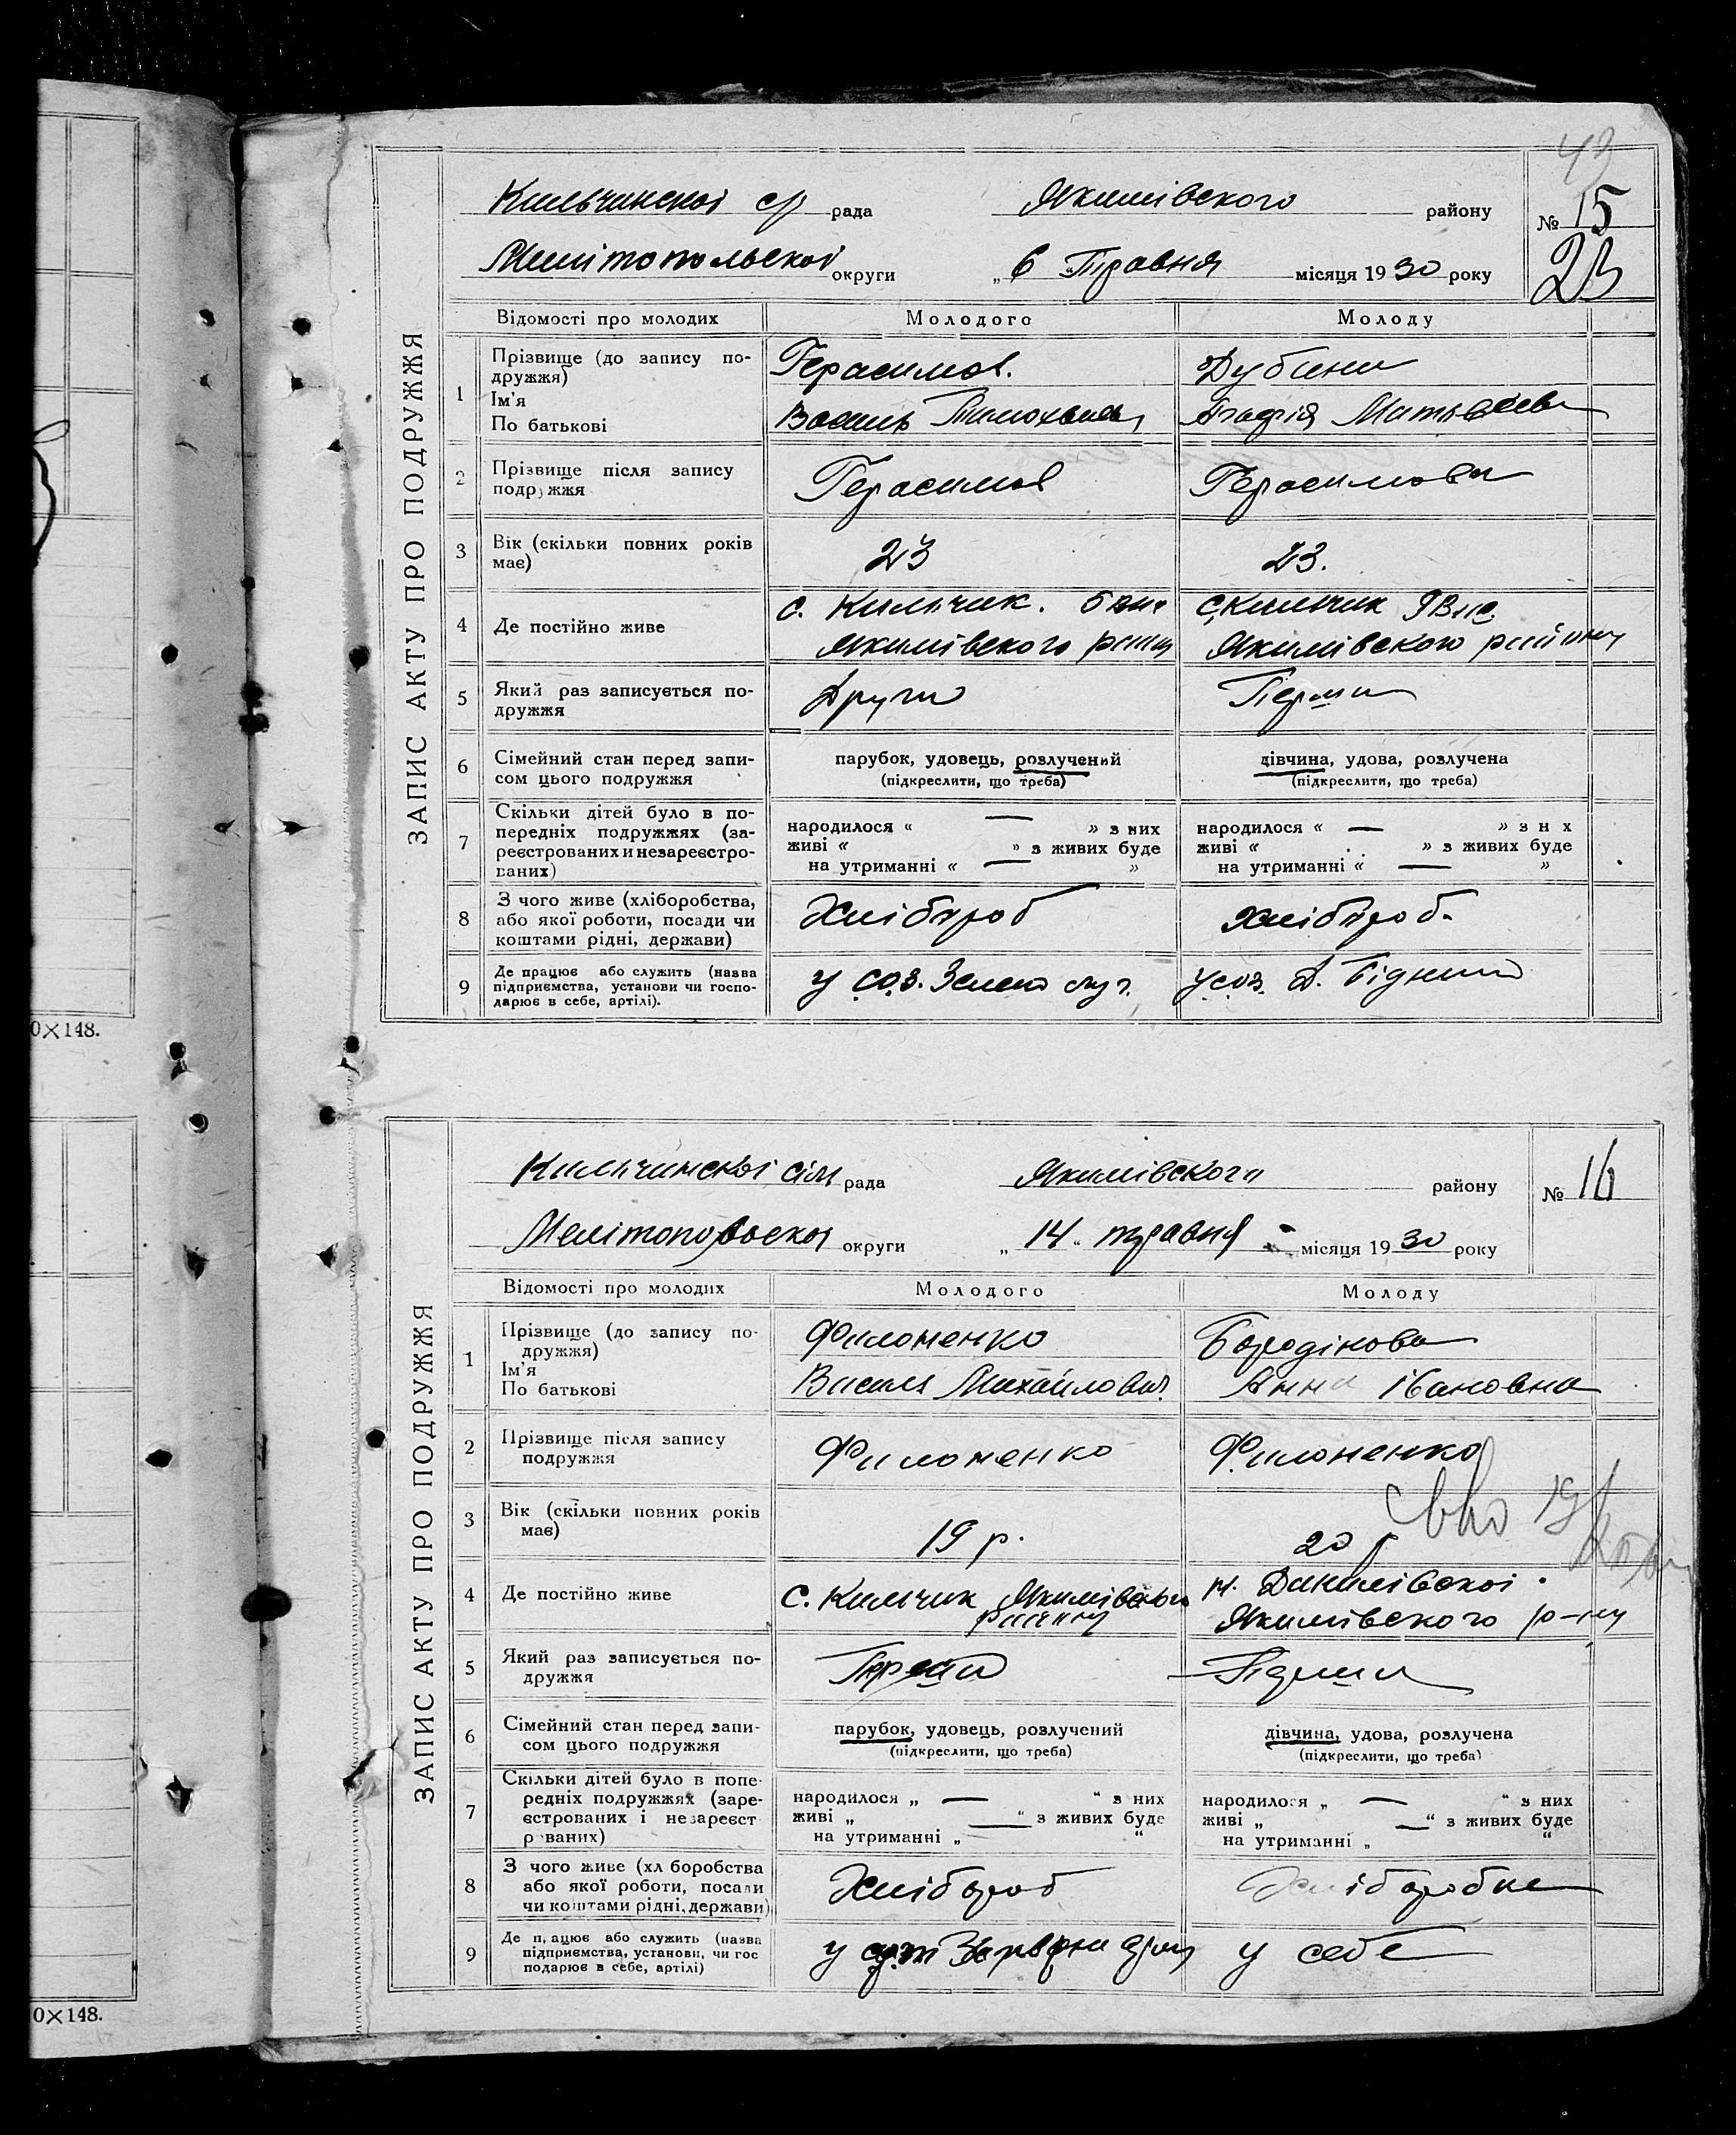 43
Кильчинскоі с/р рада Якимівского району № 15
Мелітопольскоі округи „ 6 " Травня місяця 1930 року 23
ЗАПИС АКТУ ПРО ПОДРУЖЖЯ
Відомості про молодих Молодого Молоду
1 Прізвище (до запису по-
дружжя) Герасимов. Дубина
Ім'я
По батькові Василь Агафія Матвѣева
2 Прізвище після запису
подружжя Герасимов Герасимова
3 Вік (скільки повних років
має) 23 23.
4 Де постійно живе с. Кильчик. с. Кильчик
Якимівского Якимівского району
5 Який раз записується по-
дружжя Други Перши
6 Сімейний стан перед запи-
сом цього подружжя парубок, удовець, розлучений дівчина, удова, розлучена
(підкреслити, що треба) (підкреслити, що треба)
7 Скільки дітей було в по-
передніх подружжях (за-
реєстрованих и незареєстро-
ваних)
народилося « — » з них народилося « — » з н х
живі « » з живих буде живі « » з живих буде
на утриманні « — » на утриманні « — »
8 З чого живе (хліборобства,
або якої роботи, посади чи
коштами рідні, держави) Хлібороб хлібороб.
9 Де працює або служить (назва
підприємства, установи чи госпо-
дарює в себе, артілі). у соз. у соз.
0×148.
Кильчинскоі сіл рада Якимівского району № 16
Мелітопольскоі округи „ 14 " травня місяця 1930 року
ЗАПИС АКТУ ПРО ПОДРУЖЖЯ
Відомості про молодих Молодого Молоду
1 Прізвище (до запису по-
дружжя) Филоненко Бородінова
Ім'я
По батькові Василь Михайлович Анна Івановна
2 Прізвище після запису
подружжя Филоненко Филоненко
3 Вік (скільки повних років
має) 19 р. 20 р
4 Де постійно живе с. Кильчик Якимівского
району Якимівского р-ну
5 Який раз записується по-
дружжя Перши Перши
6 Сімейний стан перед запи-
сом цього подружжя парубок, удовець, розлучений дівчина, удова, розлучена
(підкреслити, що треба) (підкреслити, що треба)
7 Скільки дітей було в попе-
редніх подружжях (заре-
єстрованих і незареєст
р ваних)
народилося „ — " з них народилося „ — " з них
живі „ — " з живих буде живі „ — " з живих буде
на утриманні „ " на утриманні „ "
8 З чого живе (хл боробства
або якої роботи, посади
чи коштами рідні, держави) Хлібороб Хліборобка
9 Де п, ацює або служить (назва
підприємства, установи, чи гос
подарює в себе, артілі) у у себе
0×148.